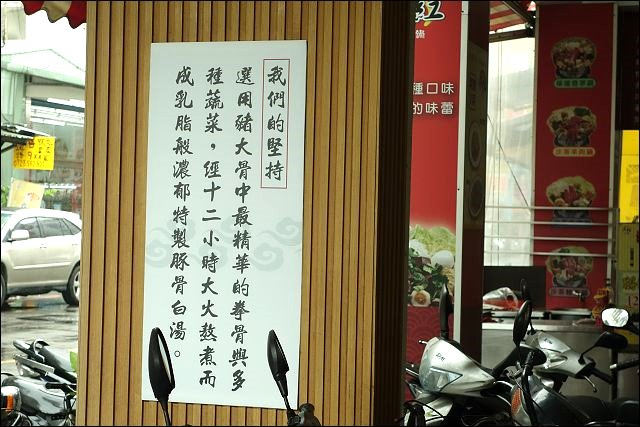 我們的堅持
選用豬大骨中最精華的拳骨與多
種蔬菜，經十二小時大火熬煮而
成乳脂般濃郁特製豚骨白湯。
種口味
的味蕾